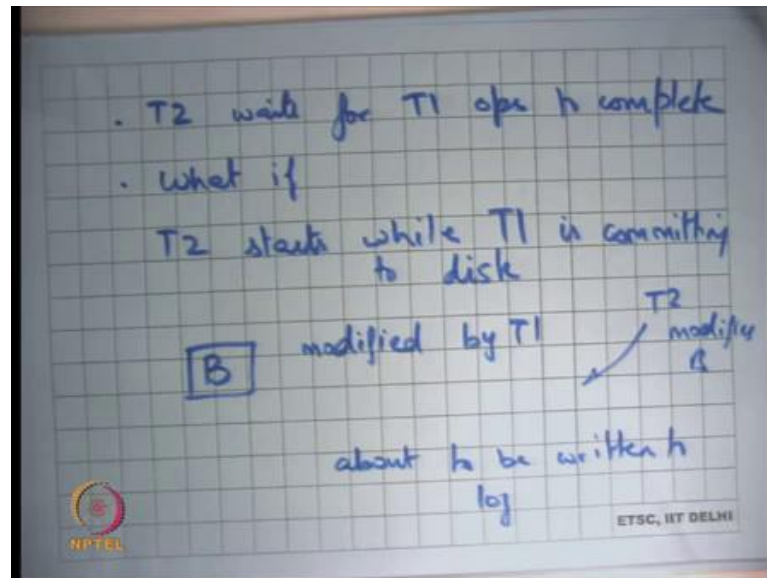 . T2 waits for T1 ops to complete
. What if
T2 starts while T1 is committing
to disk
B modified by T1
T2
modifies
B
about to be written to
log
NPTEL
ETSC, IIT DELHI